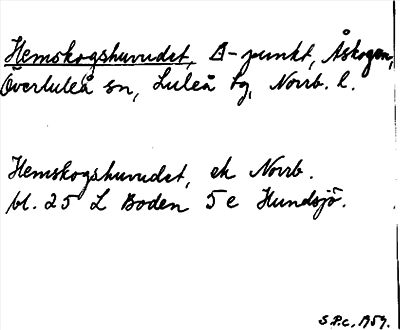 Hemskogshuvudet, B-punkt, Åskogen,
Överluleå sn, Luleå tg, Norrb. l.
Hemskogshuvudet, ek Norrb.
bl. 25 L Boden 5 e Hundsjö.
S.P.c. 1959.